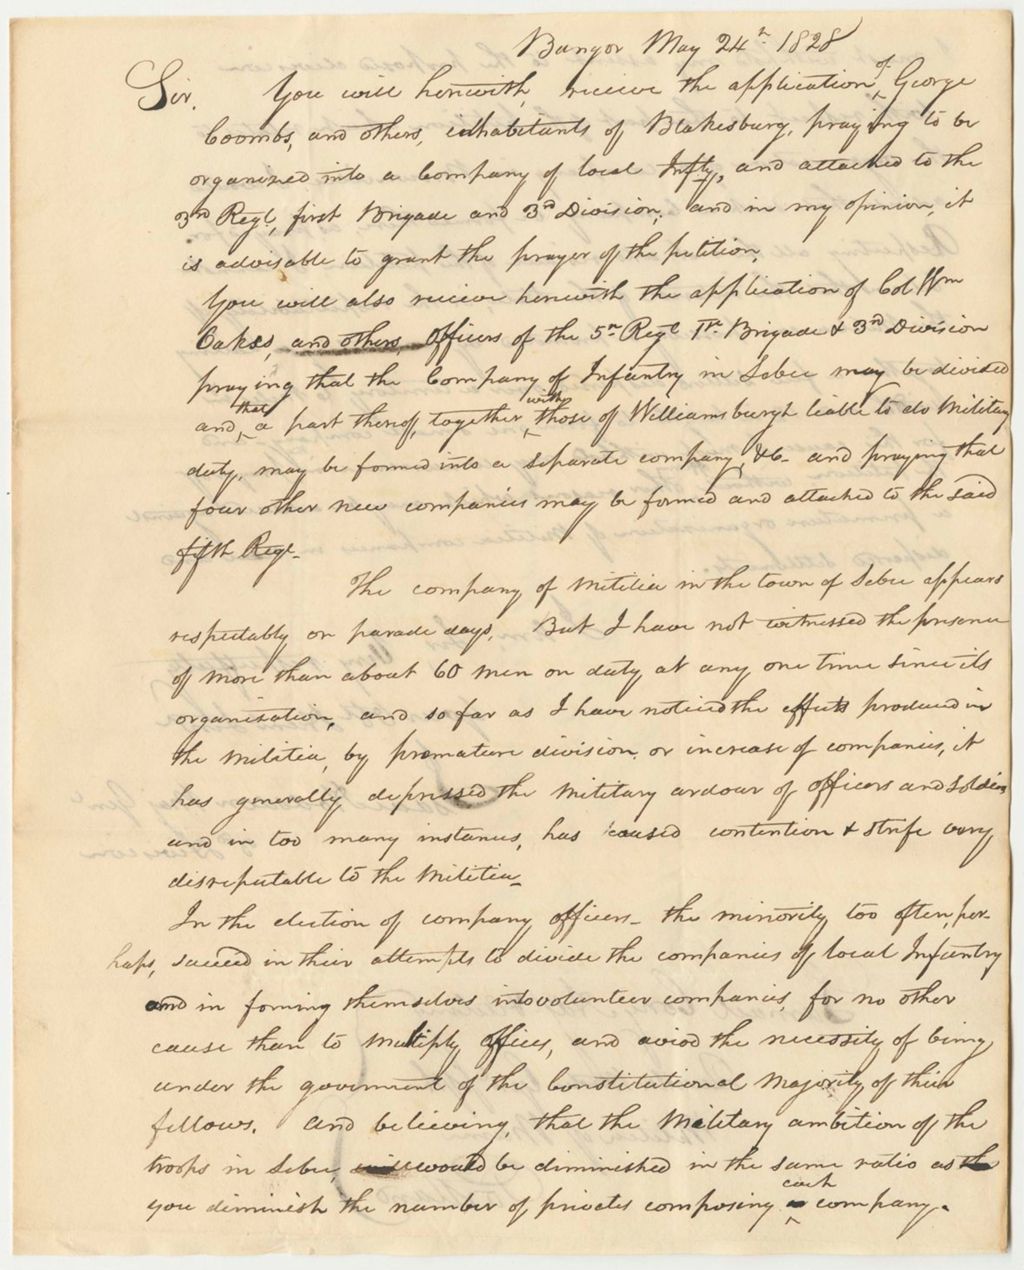 Bangor May 24th 1828
Sir. You will herewith, receive the application, of George
Coombs, and others, inhabitants of Blakesburg, praying to be
organized into a Company of local Infty, and attached to the
3rd Regt, first Brigade and 3d Division, and in my opinion, it
is advisable to grant the prayer of the petition.
You will also recieve herewith the application of Col Wm
Oakes, and others, Officers of the 5th Regt 1st Brigade & 3rd Division
praying that the Company of Infantry in Sebec may be divided
and, that a part thereof, together with those of Williamsburgh liable to do Military
duty, may be formed into a separate company, &c- and praying that
four other new companies may be formed and attached to the said
fifth Regt-
The company of Militia in the town of Sebec appears
respectably on parade days, But I have not witnessed the presence
of more than about 60 men on duty at any one time since its
organization, and so far as I have noticed the effects produced in
the Militia, by premature division, or increase of companies, it
has generally depressed the Military ardour of officers and Soldiers
and in too many instances, has caused contention & strife very
disreputable to the Militia-
In the election of company officers- the minority too often, per-
haps, succeed in their attempts to divide the companies of local Infantry
and in forming themselves into volunteer companies, for no other
cause than to multiply offices, and aviod the necessity of being
under the goverment of the Constitutional Majority of their
fellows. And believing, that the Military ambition of the
troops in Sebec, would be diminished in the same ratio as
you diminish the number of privates composing each company.